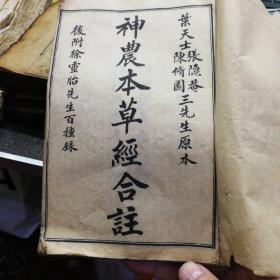 葉天士張隐菴
陳脩園三先生原本
神農本草經合註
後附徐靈胎先生百種錄